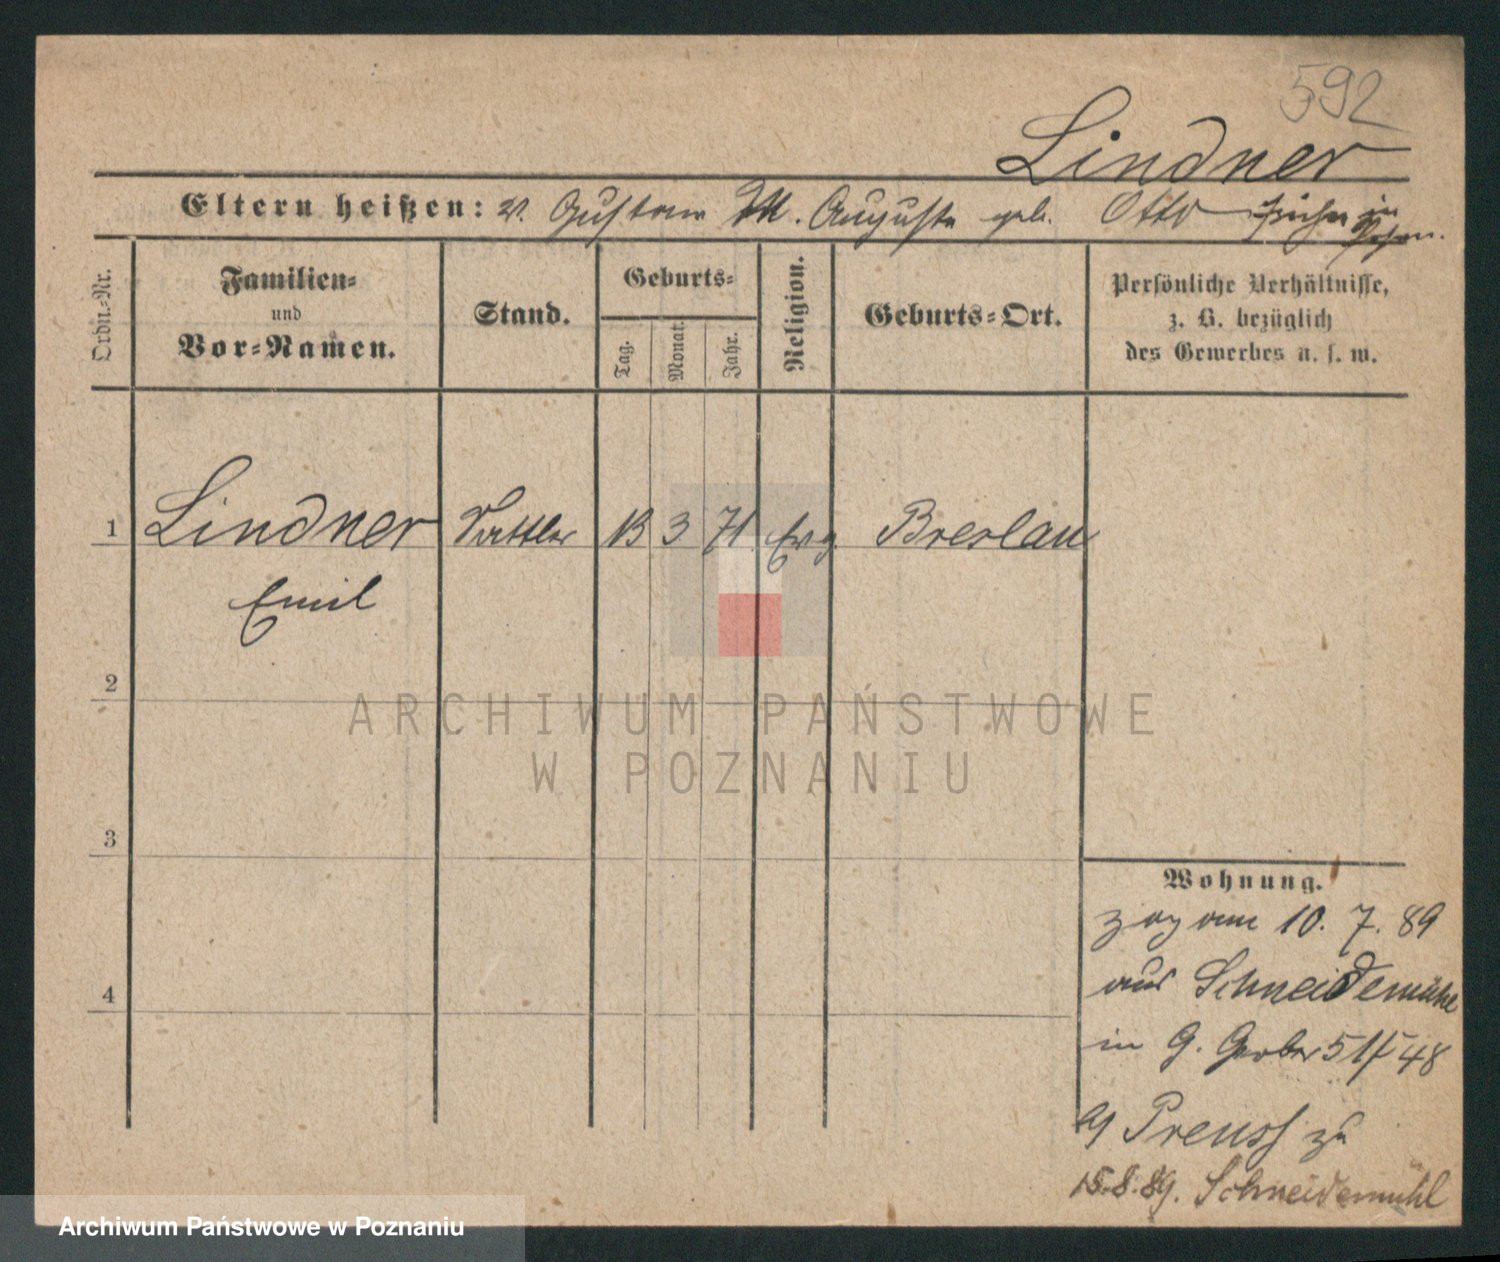 592
Lindner
Eltern heißen: V. Gustav M. Auguste geb. Otto früher in Posen.
Ordn.-Nr.
Familien-
und
Vor-Namen.
Stand.
Geburts-
Tag.
Monat.
Jahr.
Religion.
Geburts-Ort.
Persönliche Verhältnisse,
z. B. bezüglich
des Gewerbes u. s. w.
1 Lindner Sattler 13 3 71 Evg Breslau
Emil
2
3
4
Wohnung.
zog am 10. 7. 89
aus Schneidemühl
in G. Gerber 51/48
Preuss zu
15.8.89. Schneidemühl
ARCHIWUM PAŃSTWOWE
W POZNANIU
Archiwum Państwowe w Poznaniu